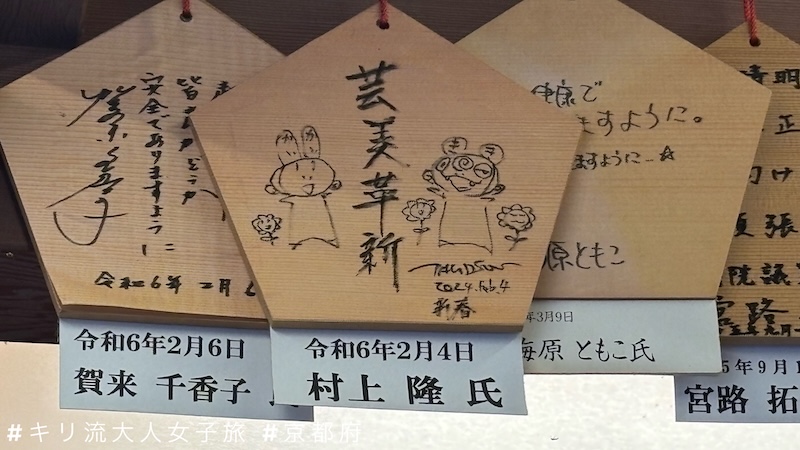 皆さまどうか
安全でありますように
令和6年 2月6
令和6年2月6日
賀来 千香子
芸美革新
き
き
TAKASHI
2024.Feb.4
新春
令和6年2月4日
村上 隆 氏
健康で
ますように。
ますように
原ともこ
年3月9日
海原 ともこ氏
晴明
正
け
張
院議
宮路
5年9月1
宮路 拓
#キリ流大人女子旅 #京都府